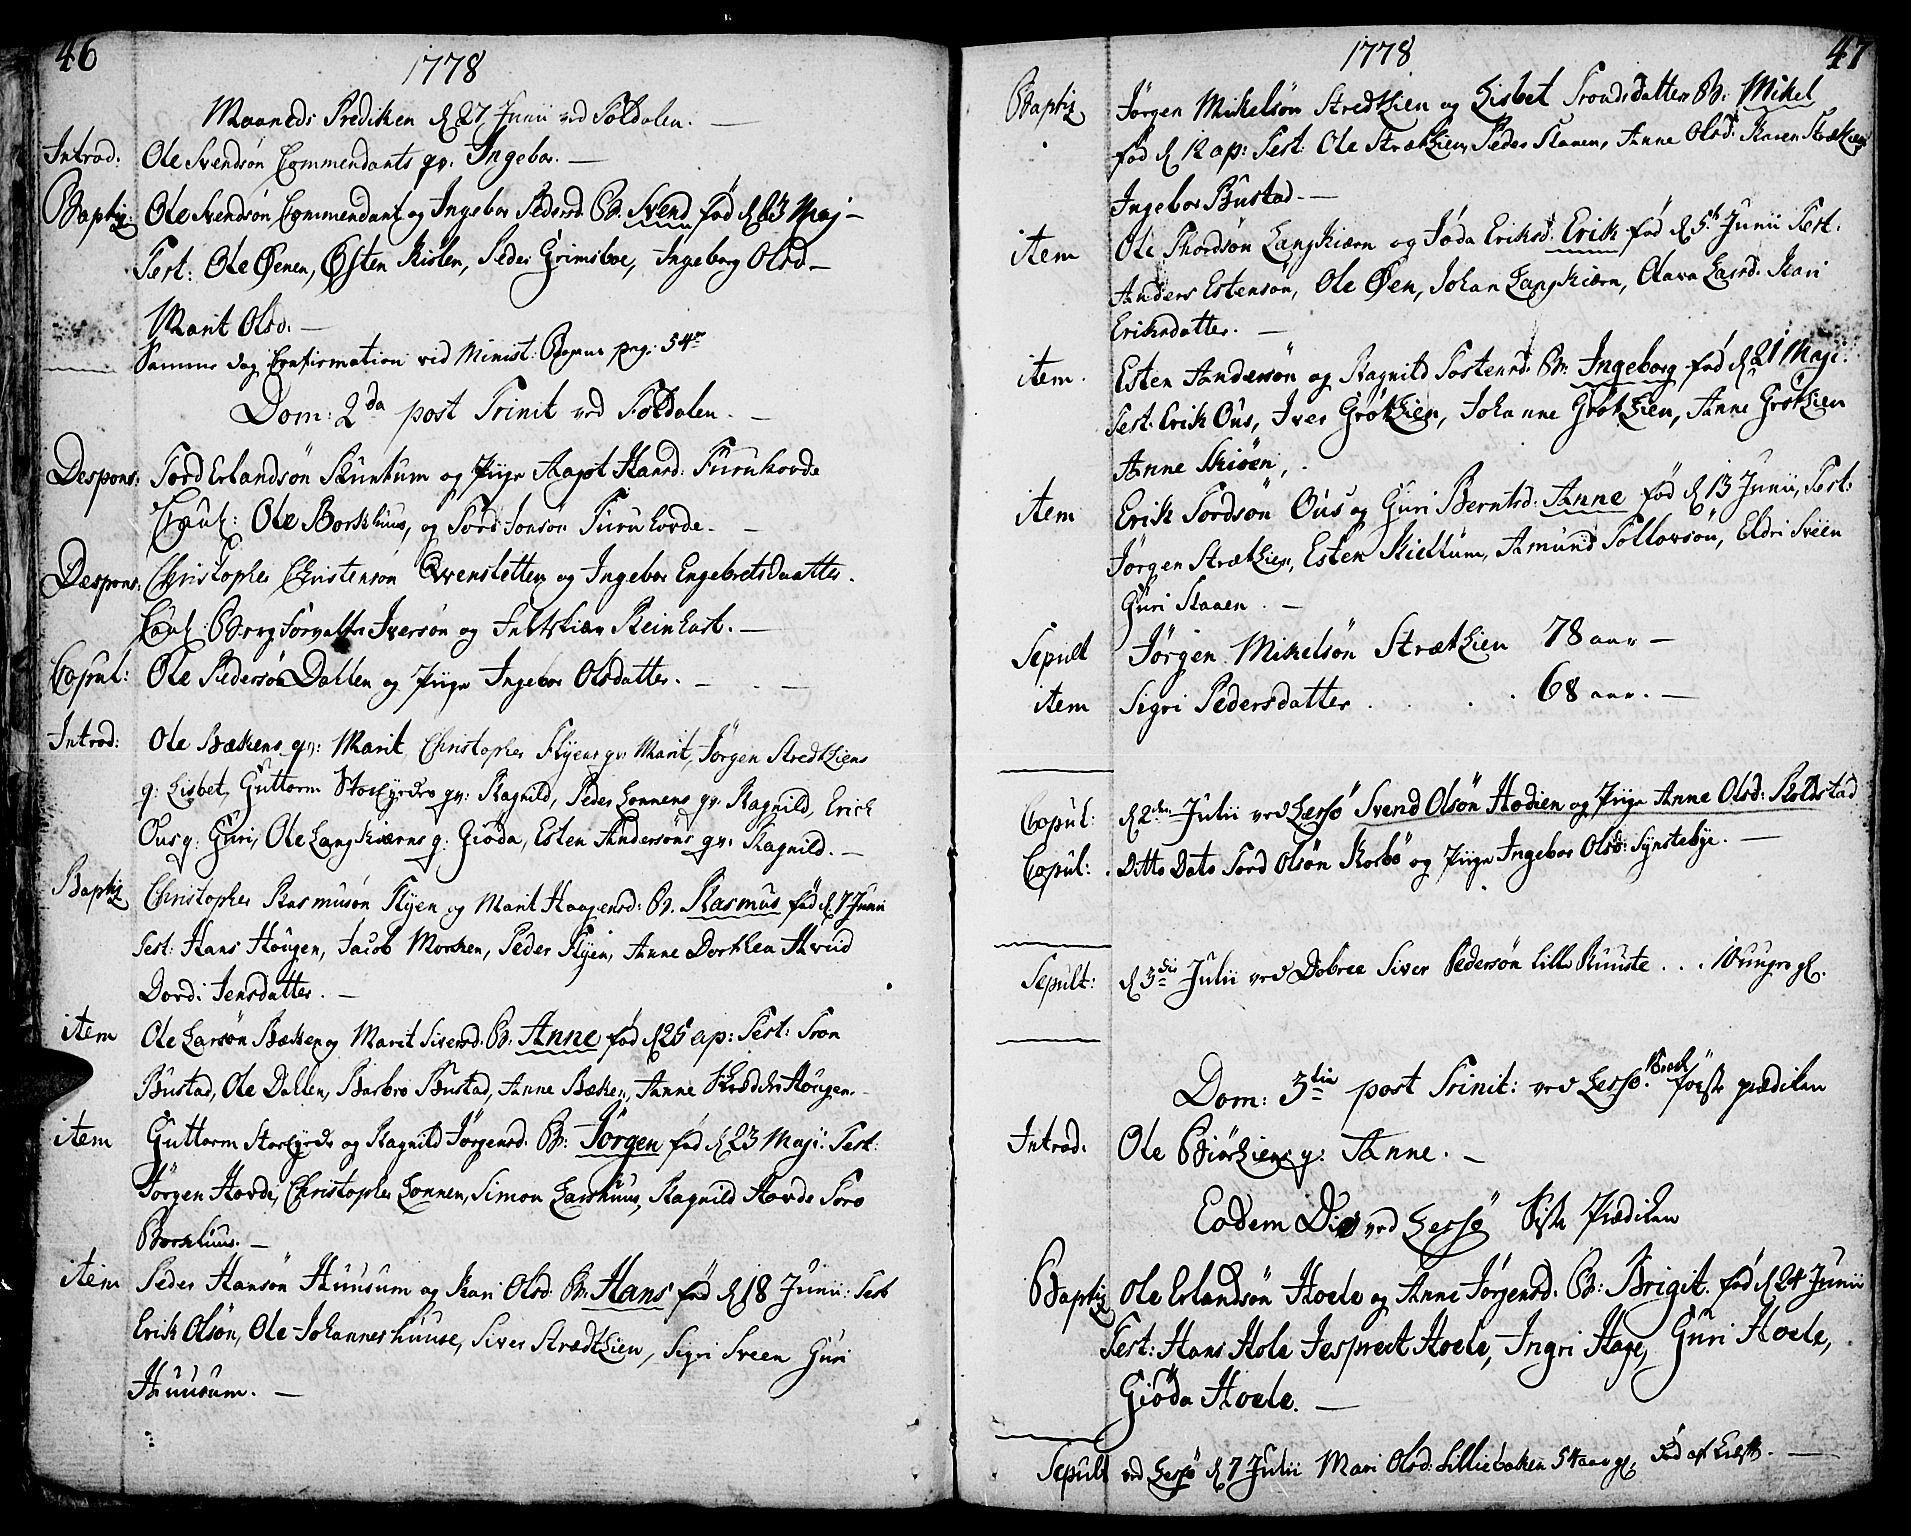 46
1778
Maaneds Prediken d 27 Junii ved Foldalen. —
Introd: Ole Svendsön Commendants qv: Ingebor. —
Baptiz: Ole Svendsön Commendant og Ingebor Pedersd. B: Svend föd d 23 Maj —
Test: Ole Øenen, Østen Kislen, Peder Grimsboe, Ingeborg Olsd —
Marit Olsd. —
Samme dag Confirmation ved Minist: pag: 54
Dom: 2da post Trinit ved Foldalen. —
Despons: Tord Erlandsön og Piige Aagot Hansd: Furuhovde
Caut: Ole Borkhuus, og Tord Jonsön Furuhovde. —
Despons: Christopher Christensön Qvenstetten og Ingebor Engebretsdaatter.
Caut: Iversön og Reinhart. —
Copul: Ole Pedersön Dallen og Piige Ingebor Olsdatter. —
Introd: Ole Bækens qv: Marit Christopher Flyens qv: Marit, Jörgen Stredtziens
q: Lisbet, Guttorm qv: Ragnild, Peder Lonnens qv: Ragnild, Erich
Ous q: Guri, Ole Langkiærns q: Giöda, Esten Andersöns qv: Ragnild. —
Baptiz Christopher Rasmusön Flyen og Marit Haagensd: B. Rasmus föd d 7 Junii
Test: Hans Hougen, Jacob Morken, Peder Flyen, Anne Dorthea
Dordi Jensdatter. —
item Ole Larsön Bækken og Marit Siversd: B: Anne föd d 25 ap: Test: Tron
Bustad, Ole Dallen, Barbro Bustad, Anne Bæken, Anne Hougen. —
item Guttorm og Ragnild Jörgensd. B: Jörgen föd d 23 Maji: Test:
Jörgen Hovde, Christopher Lonnen, Simon Larshuus, Ragnild Hovde Toro
Borkhuus. —
item Peder Hansön Huusum og Kari Olsd B: Hans föd d 18 Junii: Test
Erik Olsön, Ole Johanneshuuse, Siver Strædtzien, Sigri Sveen Guri
Huusum. —
1778
47
Baptiz Jörgen Mikelsön Stredtzien og Lisbet Tronsdatter B: Mikel
föd d 12 ap: Test: Ole Strætzien, Peder Staaen, Anne Olsd: Karen Strætzien
Ingebor Bustad. —
item Ole Thordsön Langkiærn og Jöda Eriksd: Erik föd d 5t Junii Test:
Anders Estensön, Ole Øen, Johan Langkiærn, Olava Larsd: Kari
Eriksdatter. —
item. Esten Andersön og Ragnild Tostensd: B: Ingeborg föd d 21 Maji.
Test: Erik Ous, Iver Grötzien, Johanne Grötzien, Anne Grötzien
Anne Skiöen,.
item Erik Tordsön Ous og Guri Berntsd: Anne föd d 13 Junii, Test:
Jörgen Strætzien, Esten Kiellum, Amund Tollovsön, Eldri Sveen
Guri Staaen. —
Sepult Jörgen Mikelsön Strætzien 78 aar —
item Sigri Pedersdatter . . . 68 aar. —
Copul: d 2den Julii ved Lessö Svend Olsön Hodien og Piige Anne Olsd:
Copul: Ditto Dato Tord Olsön og Piige Ingebor Olsd: Synstebye. —
Sepult: d 3die Julii ved Dobree Siver Pedersön Lille Ruuste . . . 10 gl.
Dom: 3tia post Trinit: ved Lessö förste prædiken
Introd. Ole Biörtziens q: Anne. —
Eodem Die ved Lessö Siste Prædiken
Baptiz Ole Erlandsön Hoele og Anne Jörgensd. B: Brigit. föd d 24 Junii
Test: Hans Hole Jesprect Hoele, Ingri Hage, Guri Hoele,
Giöda Hoele. —
Sepult ved Lessö d 7 Julii Mari Olsd: Lilliebaken 54 aar gl, —